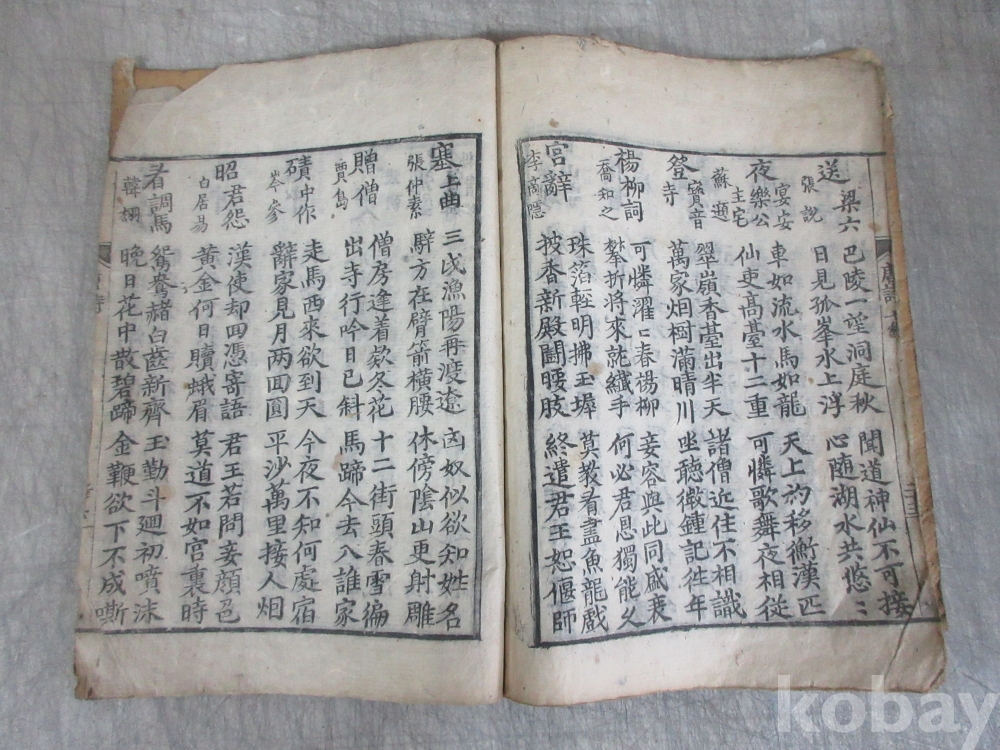 送梁六 巴陵一望洞庭秋 聞道神仙不可接
張說 日見孤峯水上浮 心随湖水共悠〻
夜宴安樂公主宅 車如流水馬如龍 天上初移衡漢匹
蘇頲 仙吏髙臺十二重 可憐歌舞夜相從
登寳音寺 翠嶺香臺出半天 諸僧近住不相識
萬家烟樹滿晴川 坐聽微鍾記徃年
楊柳詞 可憐濯〻春楊柳 妾容與此同盛衰
喬知之 攀折將來就纖手 何必君恩獨能久
宮辭 珠箔輕明拂玉墀 莫教看盡魚龍戲
李商隱 披香新殿鬪腰肢 終遣君王恕偃師
塞上曲 三戍漁陽再渡遼 匈奴似欲知姓名
張仲素 騂方在臂箭橫腰 休傍陰山更射雕
贈僧 僧房逢着欵冬花 十二街頭春雪徧
賈島 出寺行吟日已斜 馬蹄今去入誰家
磧中作 走馬西來欲到天 今夜不知何處宿
岑參 辭家見月两回圓 平沙萬里接人烟
昭君怨 漢使却回憑寄語 君王若問妾顔色
白居易 黄金何日贖蛾眉 莫道不如宮裏時
看調馬 鴛鴦赭白齒新齊 玉勒斗廻初噴沫
韓翃 晚日花中散碧蹄 金鞭欲下不成嘶
kobay